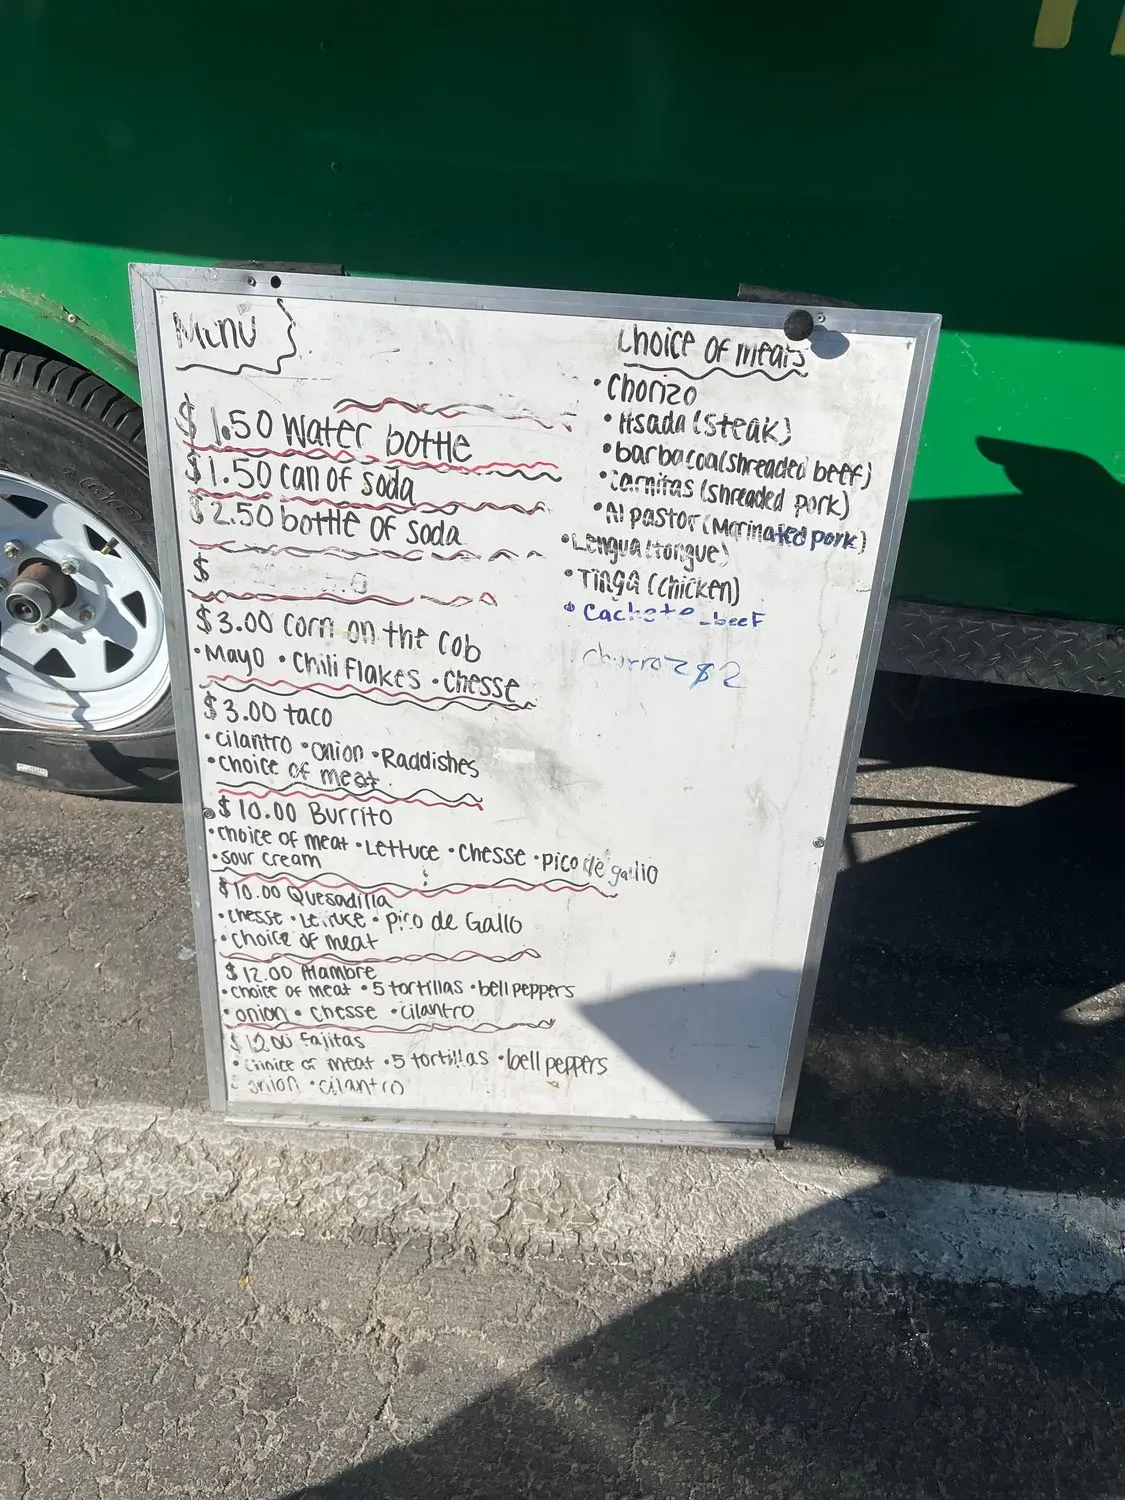 Menu
$1.50 water bottle
$1.50 can of soda
$2.50 bottle of soda
$
$3.00 corn on the cob
• Mayo • Chili Flakes • Chesse
$3.00 taco
• cilantro • onion • Raddishes
• choice of meat
$10.00 Burrito
• choice of meat • Lettuce • chesse • pico de gallo
• sour cream
$10.00 Quesadilla
• chesse • Lettuce • pico de Gallo
• choice of meat
$12.00 Alambre
• choice of meat • 5 tortillas • bell peppers
• onion • chesse • cilantro
$12.00 fajitas
• choice of meat • 5 tortillas • bell peppers
• onion • cilantro
Choice of meats
• Chorizo
• Asada (steak)
• barbacoa (shreaded beef)
• Carnitas (shreaded pork)
• Al pastor (Marinated pork)
• Lengua (tongue)
• Tinga (chicken)
• cachete - beeF
churros $2